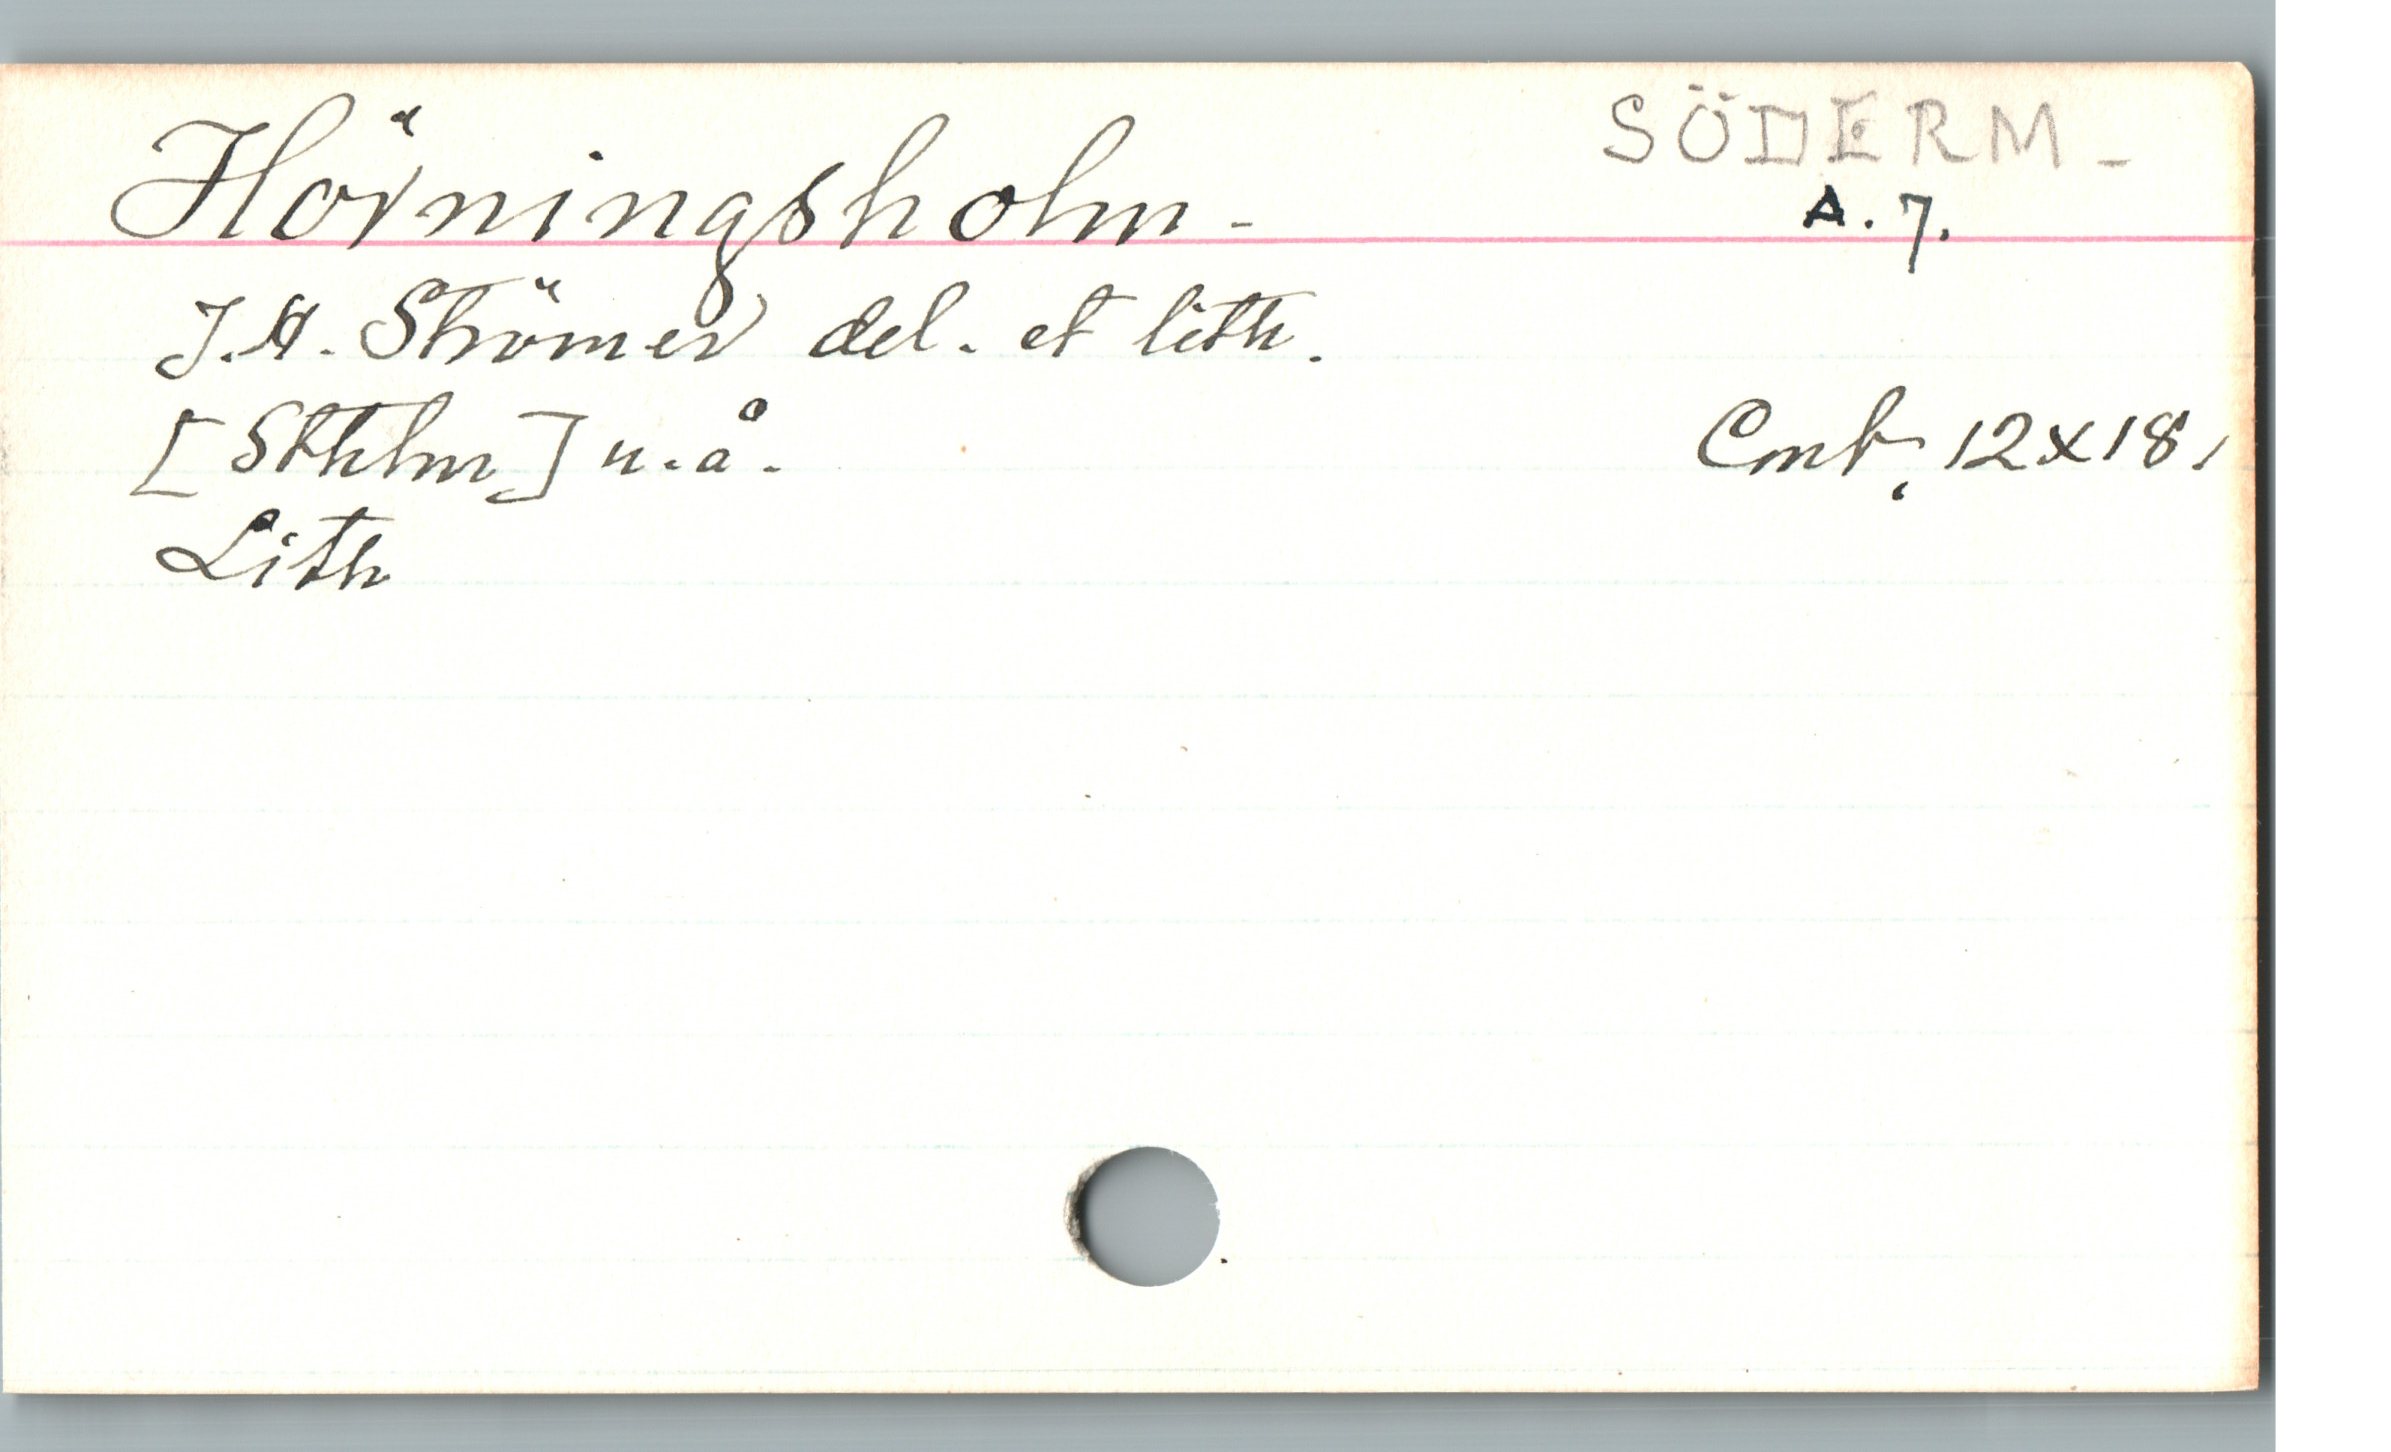 Hörningsholm-
SÖDERM-
A. 7.
J. H. Strömer del. et lith.
[Sthlm] u.å.
Cmb. 12x18.
Lith